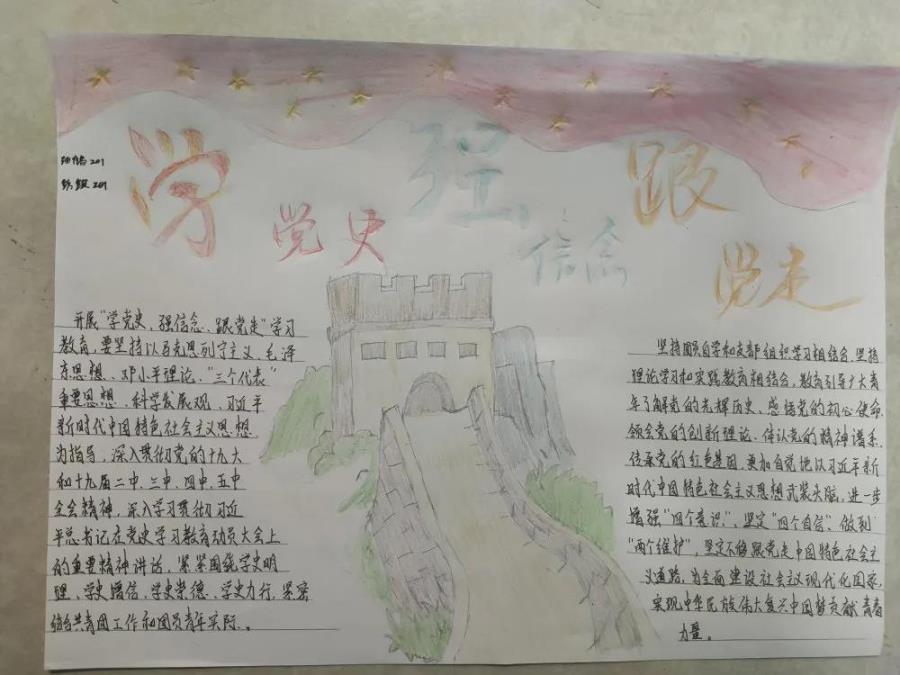 学党史 强信念 跟党走
201
201
开展“学党史、强信念、跟党走”学习
教育,要坚持以马克思列宁主义、毛泽
东思想、邓小平理论、“三个代表”
重要思想、科学发展观、习近平
新时代中国特色社会主义思想
为指导,深入贯彻党的十九大
和十九届二中、三中、四中、五中
全会精神,深入学习贯彻习近
平总书记在党史学习教育动员大会上
的重要精神讲话,紧紧围绕学史明
理、学史增信、学史崇德、学史力行,紧密
结合共青团工作和团员青年实际.
坚持团员自学和支部组织学习相结合.坚持
理论学习和实践教育相结合,教育引导广大青
年了解党的光辉历史、感悟党的初心使命
领会党的创新理论、体认党的精神谱系
传承党的红色基因,更加自觉地以习近平新
时代中国特色社会主义思想武装头脑,进一步
增强“四个意识”,坚定“四个自信”,做到
“两个维护”,坚定不移跟党走中国特色社会主
义道路,为全面建设社会主义现代化国家,
实现中华民族伟大复兴中国梦贡献青春
力量。